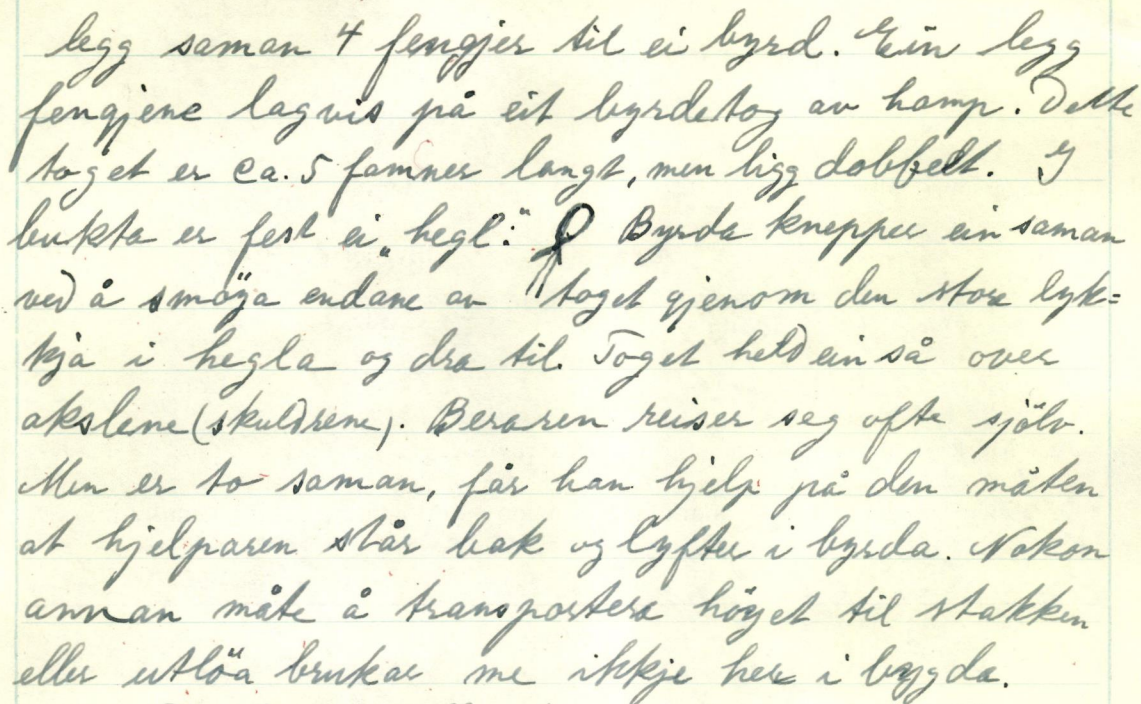 legg saman 4 fengjer til ei byrd. Ein legg
fengjene lagvis på eit byrdetog av hamp. Dette
toget er ca. 5 famner langt, men ligg dobbelt. I
bukta er fest ei „hegl:" Byrda knepper ein saman
ved å smöya endane av toget gjenom den store lyk=
kja i hegla og dra til. Toget held ein så over
akslene (skuldrene). Beraren reiser seg ofte sjölv.
Men er to saman, får han hjelp på den måten
at hjelparen står bak og lyfter i byrda. Nokon
annan måte å transportera höyet til stakken
eller utlöa brukar me ikkje her i bygda.